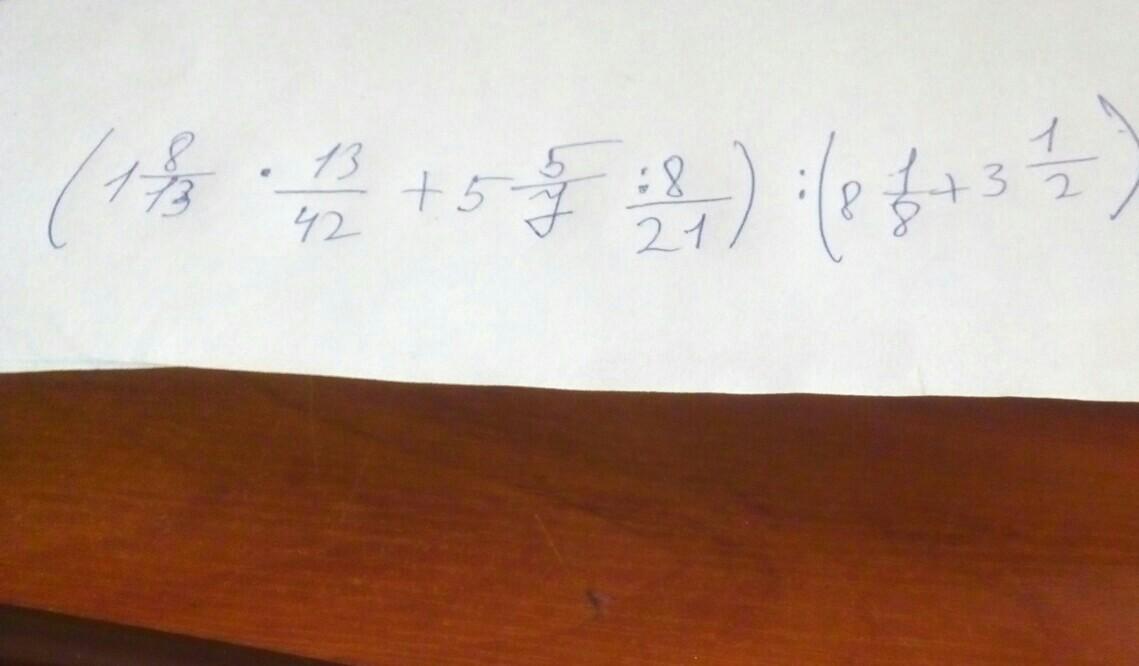 (1 8/13 · 13/42 + 5 5/7 : 8/21) : (8 1/8 + 3 1/2)